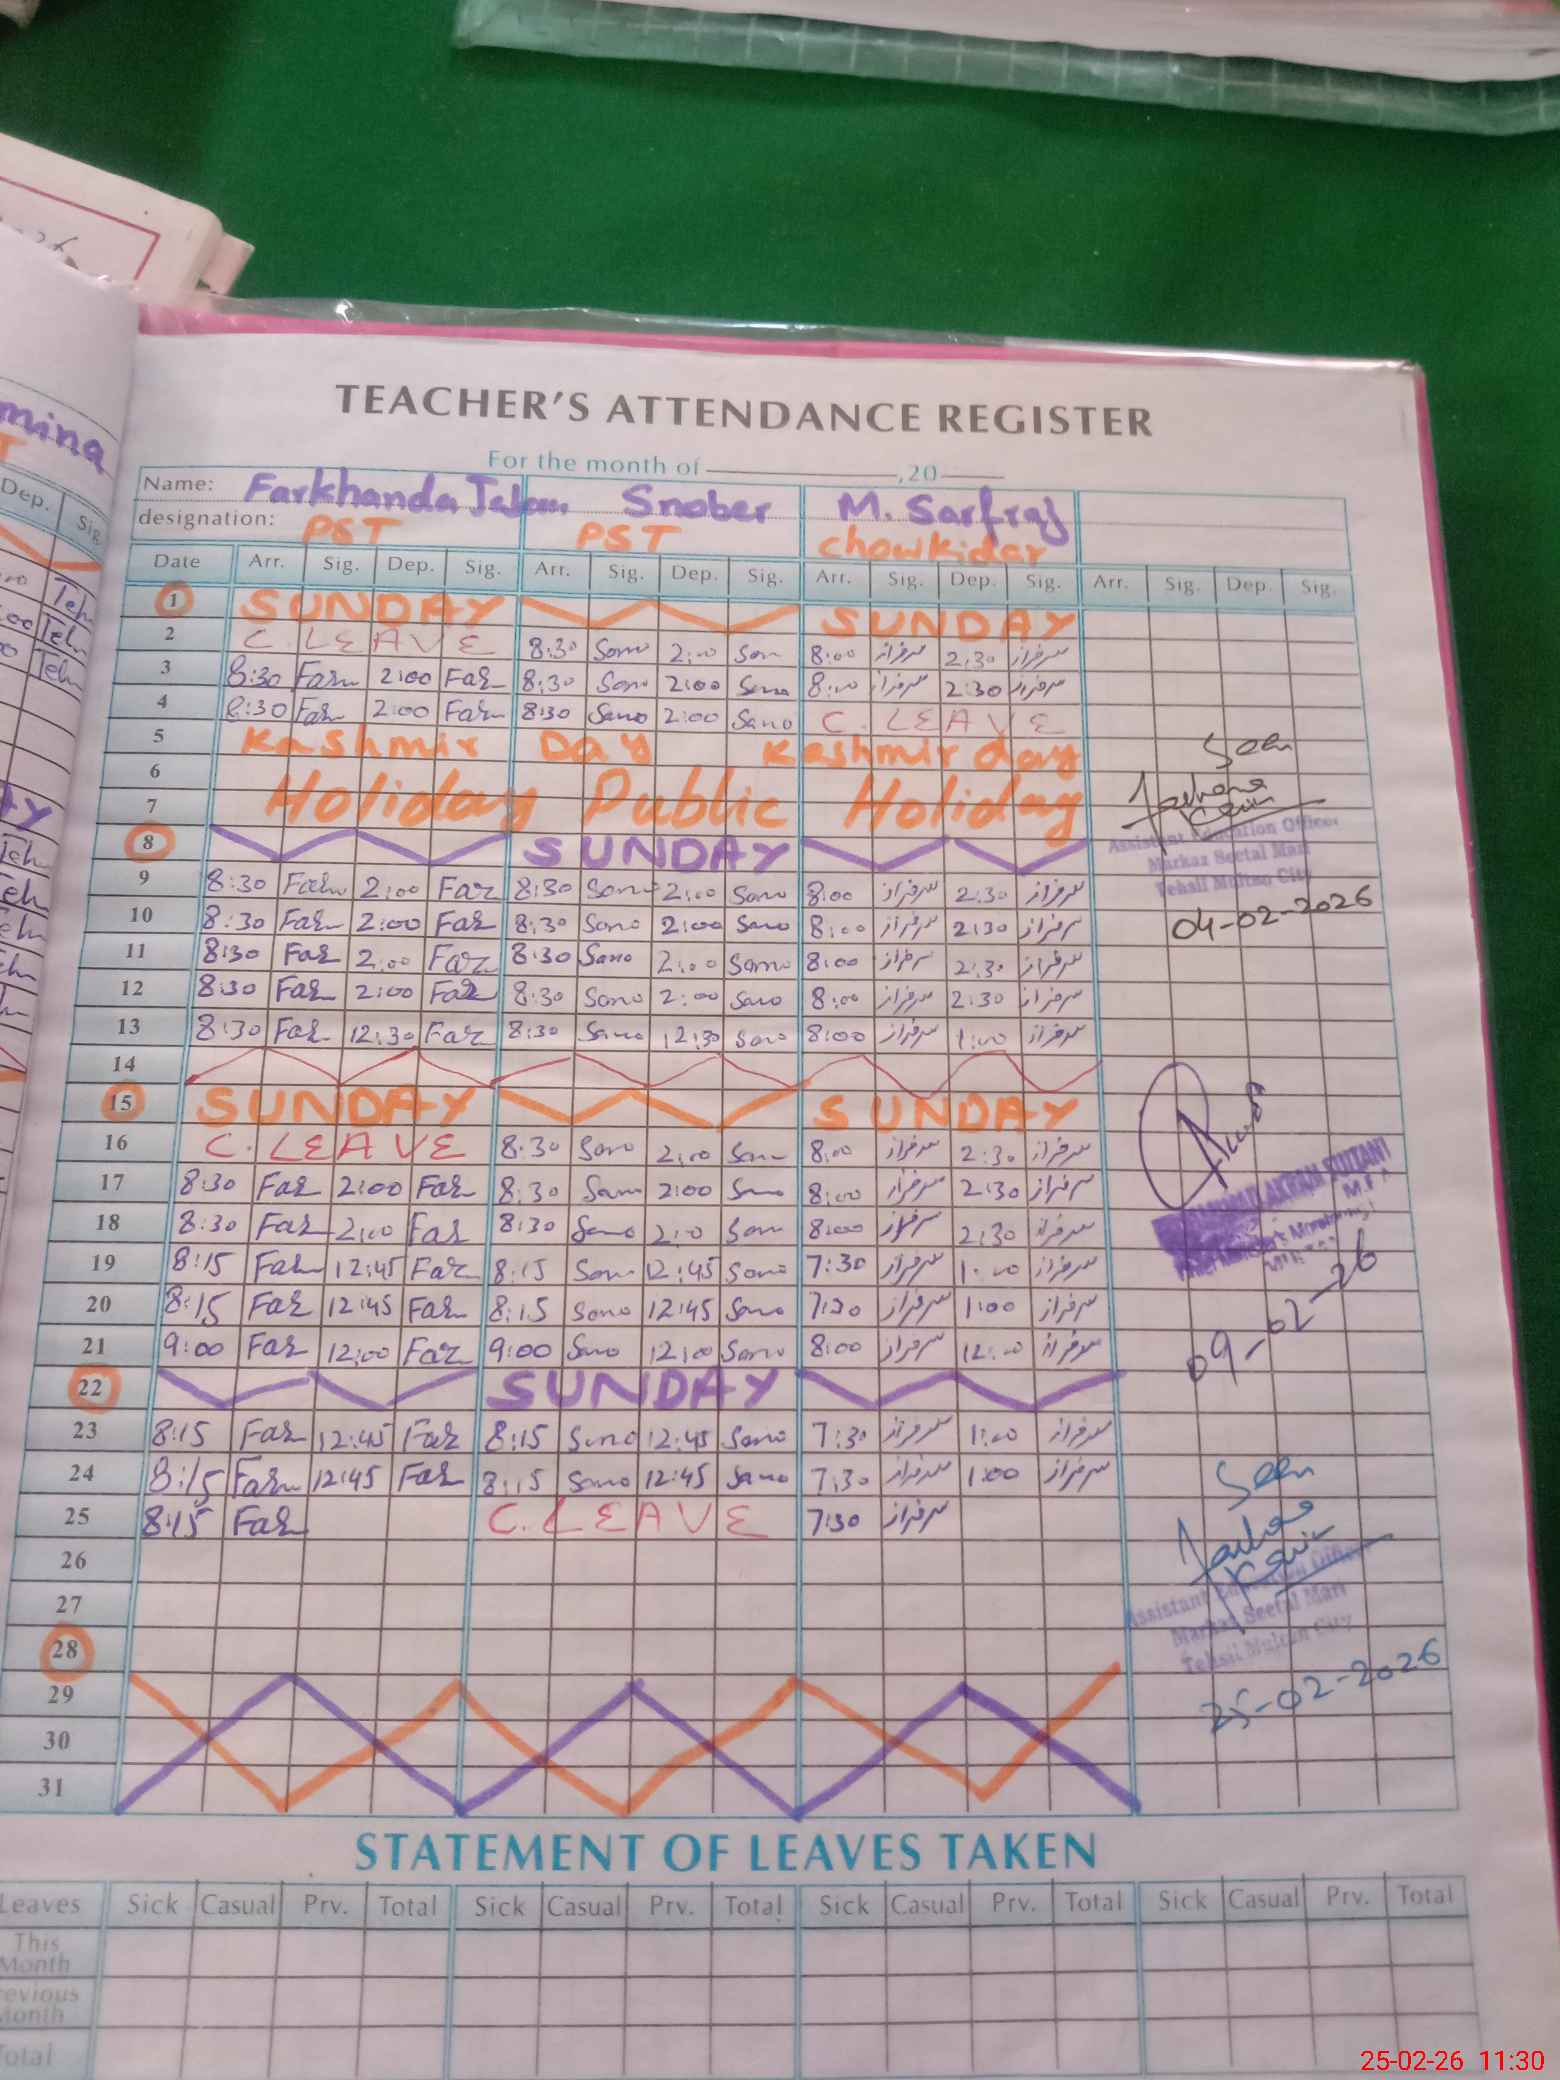 TEACHER'S ATTENDANCE REGISTER
For the month of ,20
Name: Farkhanda Snober M. Sarfraz
designation: PST PST Chowkidar
Date Arr. Sig. Dep. Sig. Arr. Sig. Dep. Sig. Arr. Sig. Dep. Sig. Arr. Sig. Dep. Sig.
1 SUNDAY SUNDAY
2 C. LEAVE 8:30 Sono 2:00 Son 8:00 سرفراز 2:30 سرفراز
3 8:30 Farn 2:00 Far 8:30 Sano 2:00 Sano 8:00 سرفراز 2:30 سرفراز
4 8:30 Far 2:00 Farn 8:30 Sano 2:00 Sano C. LEAVE
5 Kashmir Day Kashmir day
6
7 Holiday Public Holiday
8 SUNDAY
9 8:30 Farn 2:00 Far 8:30 Sano 2:00 Sano 8:00 سرفراز 2:30 سرفراز
10 8:30 Far 2:00 Far 8:30 Sano 2:00 Sano 8:00 سرفراز 2:30 سرفراز
11 8:30 Far 2:00 Far 8:30 Sano 2:00 Sano 8:00 سرفراز 2:30 سرفراز
12 8:30 Far 2:00 Far 8:30 Sano 2:00 Sano 8:00 سرفراز 2:30 سرفراز
13 8:30 Far 12:30 Far 8:30 Sano 12:30 Sano 8:00 سرفراز 1:00 سرفراز
14
15 SUNDAY SUNDAY
16 C. LEAVE 8:30 Sano 2:00 Sano 8:00 سرفراز 2:30 سرفراز
17 8:30 Far 2:00 Far 8:30 Sano 2:00 Sano 8:00 سرفراز 2:30 سرفراز
18 8:30 Far 2:00 Far 8:30 Sano 2:00 Sano 8:00 سرفراز 2:30 سرفراز
19 8:15 Far 12:45 Far 8:15 Sano 12:45 Sano 7:30 سرفراز 1:00 سرفراز
20 8:15 Far 12:45 Far 8:15 Sano 12:45 Sano 7:30 سرفراز 1:00 سرفراز
21 9:00 Far 12:00 Far 9:00 Sano 12:00 Sano 8:00 سرفراز 12:00 سرفراز
22 SUNDAY
23 8:15 Far 12:45 Far 8:15 Sano 12:45 Sano 7:30 سرفراز 1:00 سرفراز
24 8:15 Farn 12:45 Far 8:15 Sano 12:45 Sano 7:30 سرفراز 1:00 سرفراز
25 8:15 Far C. LEAVE 7:30 سرفراز
26
27
28
29
30
31
Seen
Assistant Education Officer
Markaz Seetal Mari
Tehsil Multan City
04-02-2026
09-02-26
Seen
Assistant Education Officer
Markaz Seetal Mari
Tehsil Multan City
25-02-2026
STATEMENT OF LEAVES TAKEN
Leaves Sick Casual Prv. Total Sick Casual Prv. Total Sick Casual Prv. Total Sick Casual Prv. Total
This Month
Previous Month
Total
mina
Dep. Sig.
25-02-26 11:30